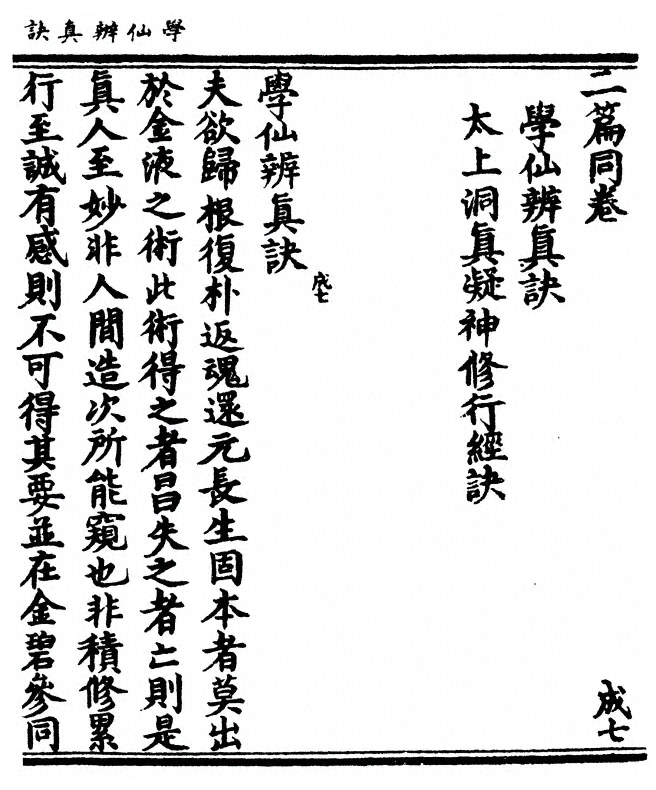 學仙辨真訣
二篇同卷 成七
學仙辨眞訣
太上洞眞凝神修行經訣
學仙辨眞訣 成七
夫欲歸根復朴返魂還元長生固本者莫出
於金液之術此術得之者昌失之者亡則是
眞人至妙非人間造次所能窺也非積修累
行至誠有感則不可得其要並在金碧參同